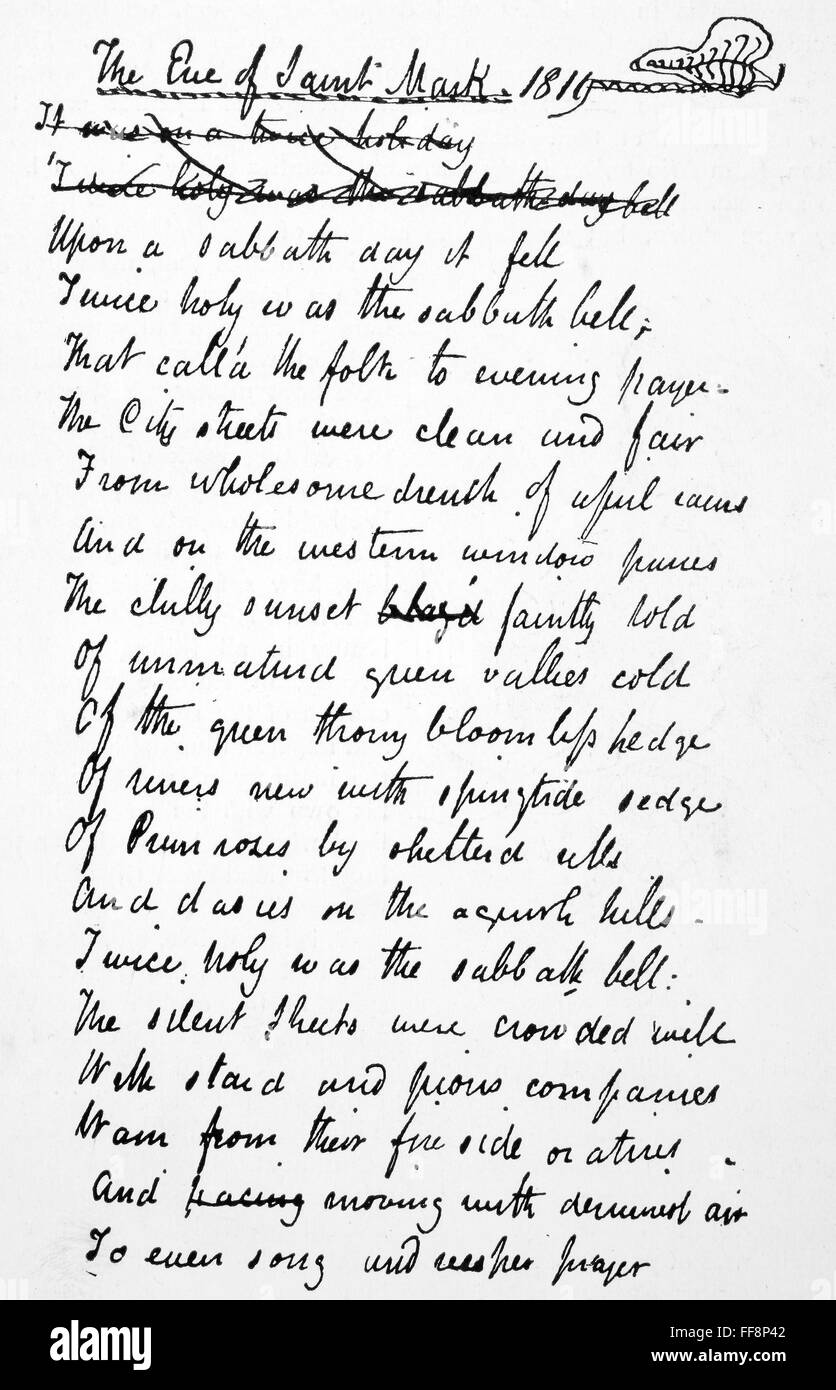 The Eve of Saint Mark. 1819
It was on a twice holiday
Twice holy was the sabbath day bell
Upon a sabbath day it fell
Twice holy was the sabbath bell;
That call'd the folk to evening prayer.
The City streets were clean and fair
From wholesome drench of april rains
And on the western window panes
The chilly sunset blaz'd faintly told
Of unmaturd green vallies cold
Of the green thorny bloomless hedge
Of rivers new with springtide sedge
Of Primroses by shelterd rills
And dasies on the aguish hills.
Twice holy was the sabbath bell:
The silent streets were crowded well
With staid and pious companies
Warm from their fireside oratries.
And pacing moving with demurest air
To even song and vesper prayer
alamy
Image ID: FF8P42
www.alamy.com